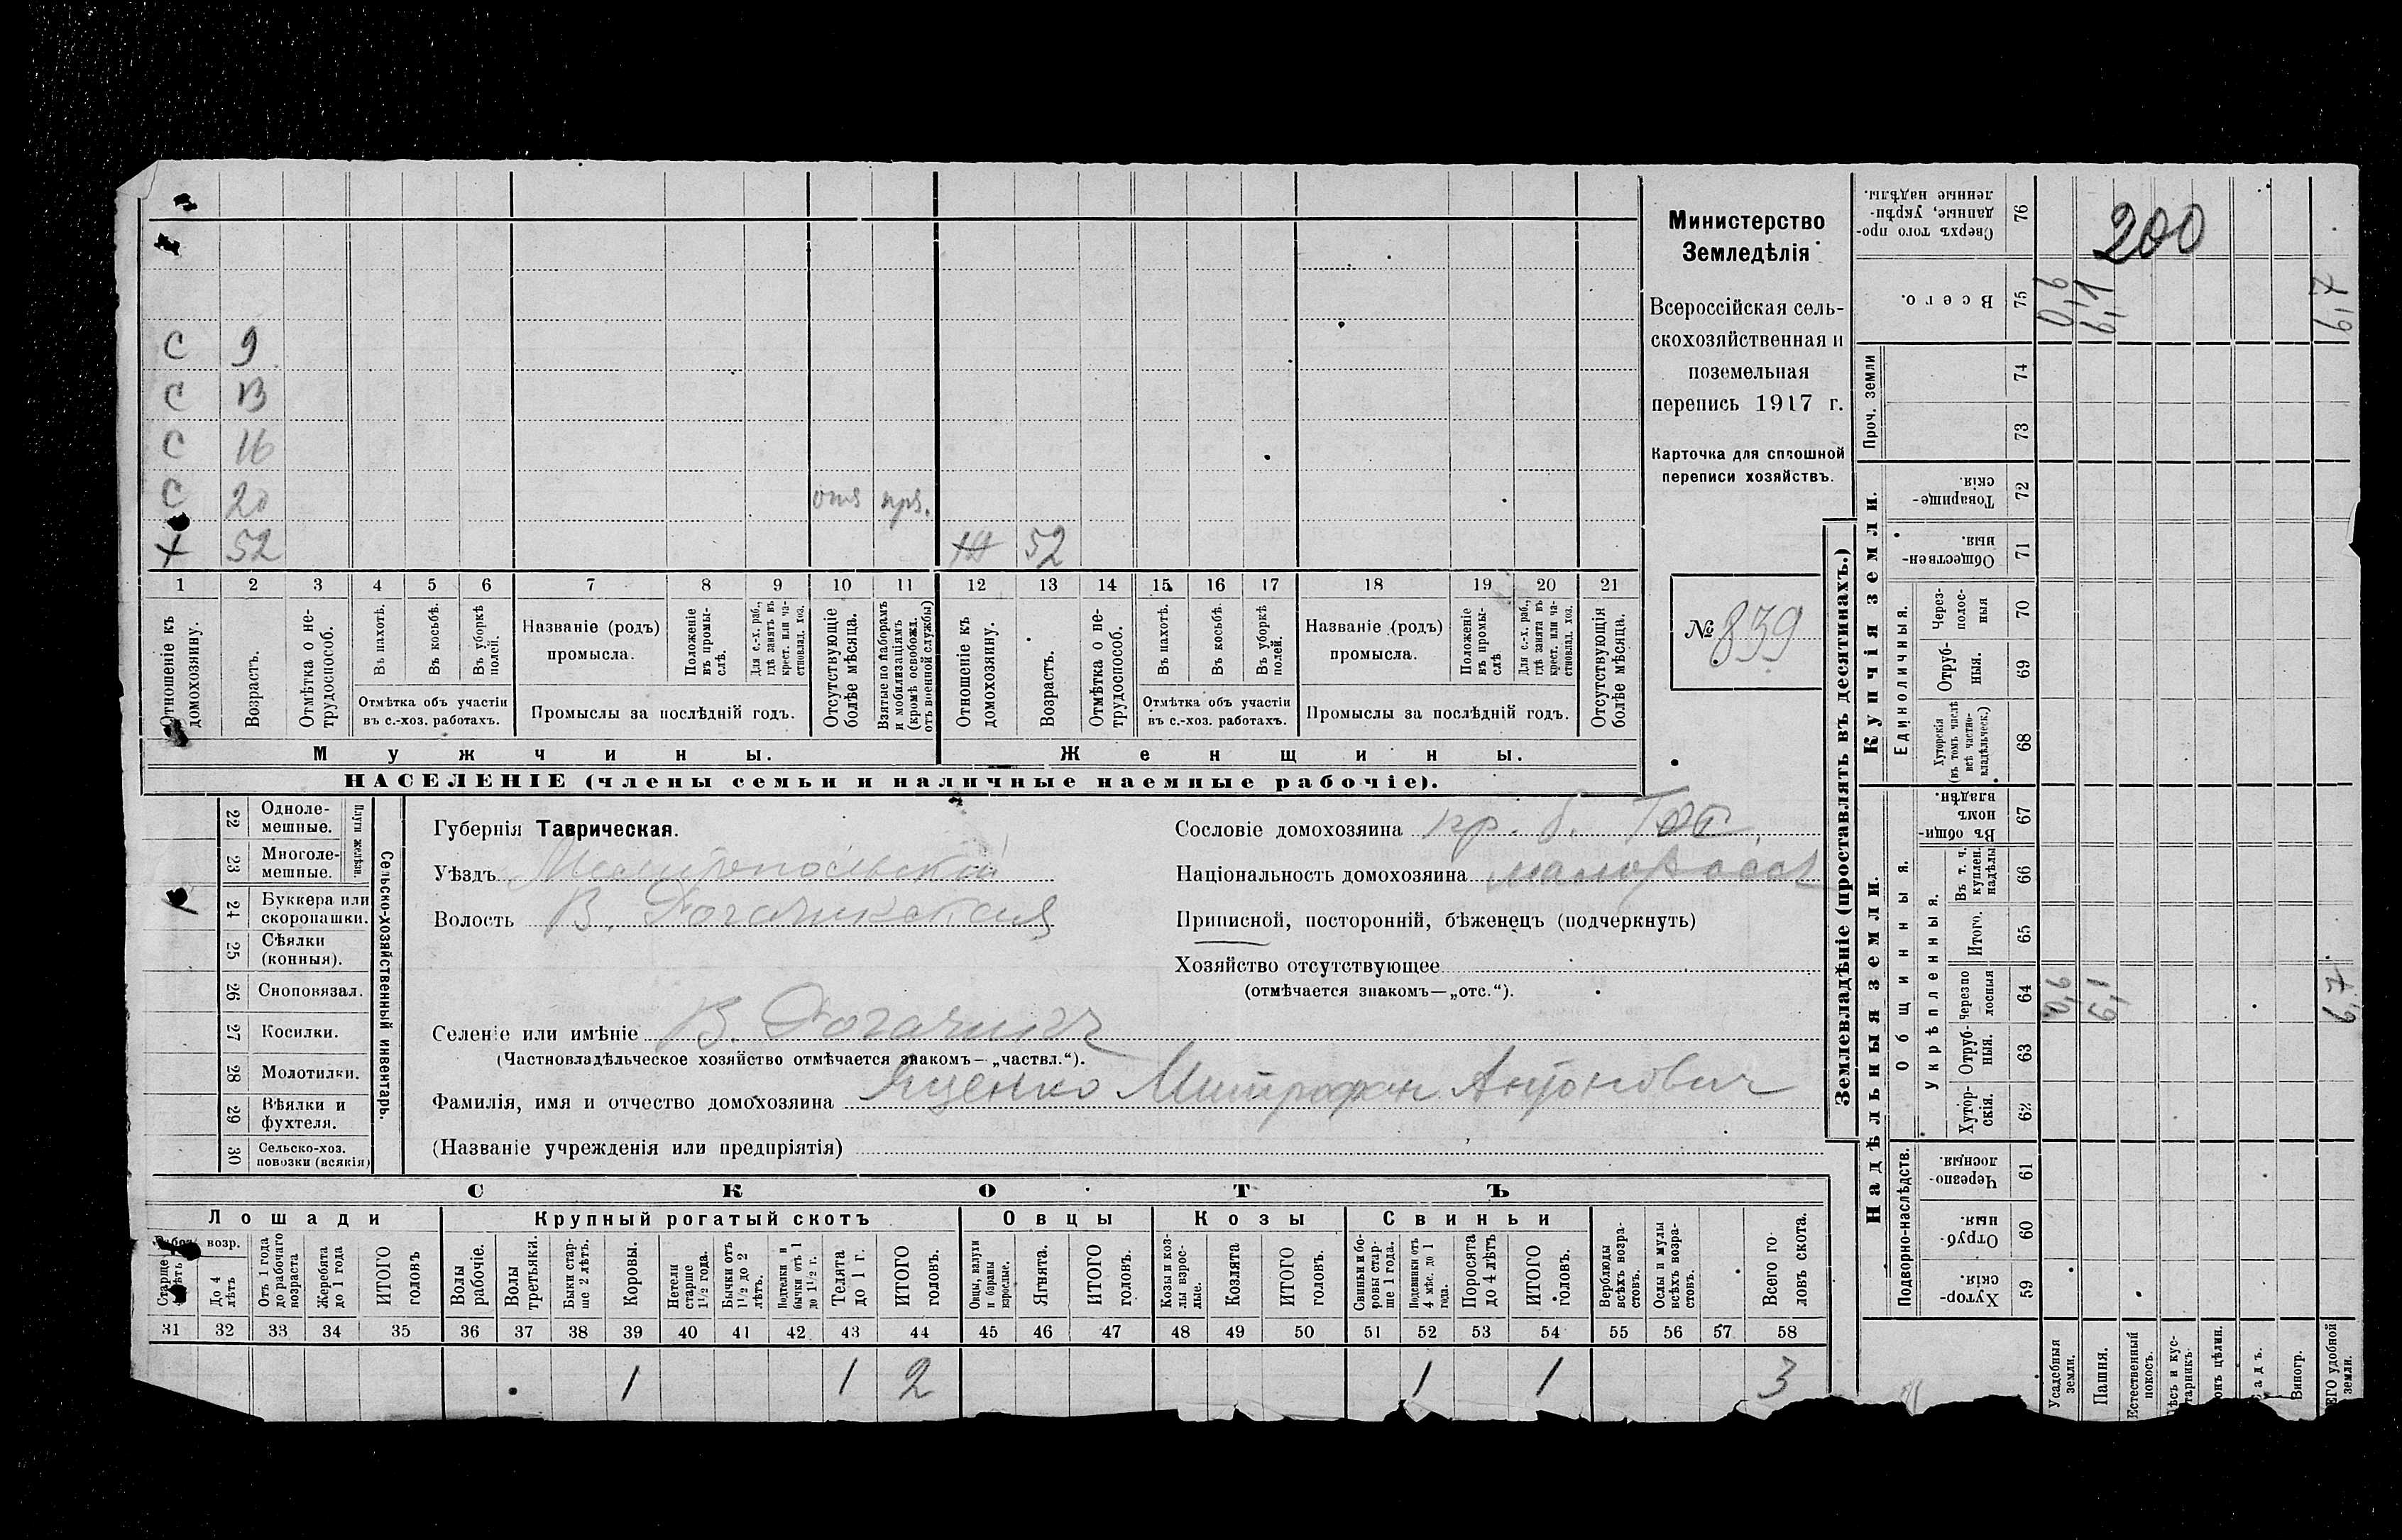 Министерство
Земледѣлія
Всероссійская сель-
скохозяйственная и
поземельная
перепись 1917 г.
Карточка для сплошной
переписи хозяйствъ.
№ 839
С 9
С 13
С 16
С 20 отъ прз.
+ 52 52
1 2 3 4 5 6 7 8 9 10 11 12 13 14 15 16 17 18 19 20 21
Отношеніе къ домохозяину.
Возрастъ.
Отмѣтка о не-трудоспособ.
Въ пахотѣ.
Въ косьбѣ.
Въ уборкѣ полей.
Отмѣтка объ участіи
въ с.-хоз. работахъ.
Названіе (родъ)
промысла.
Положеніе въ промы-слѣ.
Для с.-х. раб., гдѣ занятъ въ крест. или ча-стновлад. хоз.
Промыслы за послѣдній годъ.
Отсутствующіе болѣе мѣсяца.
Взятые по наборамъ и мобилизаціямъ (кромѣ освобожд. отъ военной службы)
Отношеніе къ домохозяину.
Возрастъ.
Отмѣтка о не-трудоспособ.
Въ пахотѣ.
Въ косьбѣ.
Въ уборкѣ полей.
Отмѣтка объ участіи
въ с.-хоз. работахъ.
Названіе (родъ)
промысла.
Положеніе въ промы-слѣ
Для с.-х. раб., гдѣ занята въ крест. или ча-стновлад. хоз.
Промыслы за послѣдній годъ.
Отсутствующія болѣе мѣсяца.
Мужчины.
Женщины.
НАСЕЛЕНІЕ (члены семьи и наличные наемные рабочіе).
22 Одноле-мешные.
23 Многоле-мешные.
Плуги желѣзн.
24 Буккера или скоропашки.
25 Сѣялки (конныя).
26 Сноповязал.
27 Косилки.
28 Молотилки.
29 Вѣялки и фухтеля.
30 Сельско-хоз. повозки (всякія)
Сельско-хозяйственный инвентарь.
Губернія Таврическая.
Уѣздъ Мелитопольскій
Волость В. Рогачикская
Селеніе или имѣніе В. Рогачикъ
(Частновладѣльческое хозяйство отмѣчается знакомъ—„частвл.“).
Фамилія, имя и отчество домохозяина Яценко Митрофан Антонович
(Названіе учрежденія или предпріятія)
Сословіе домохозяина кр. б. Гос.
Національность домохозяина малоросс
Приписной, посторонній, бѣженецъ (подчеркнуть)
Хозяйство отсутствующее
(отмѣчается знакомъ—„отс.“).
СКОТЪ
Лошади
Крупный рогатый скотъ
Овцы
Козы
Свиньи
возр.
До 4 лѣтъ
Отъ 1 года до рабочаго возраста
Жеребята до 1 года
ИТОГО головъ
Волы рабочіе.
Волы третьяки.
Быки стар-ше 2 лѣтъ.
Коровы.
Нетели старше 1 1/2 года.
Бычки отъ 1 1/2 до 2 лѣтъ.
Подтелки и бычки отъ 1 до 1 1/2 г.
Телята до 1 г.
ИТОГО головъ.
Овцы, валухи и бараны взрослые.
Ягнята.
ИТОГО головъ.
Козы и коз-лы взрос-лые.
Козлята
ИТОГО головъ.
Свиньи и бо-ровы стар-ше 1 года.
Подсвинки отъ 4 мѣс. до 1 года.
Поросята до 4 лѣтъ
ИТОГО головъ.
Верблюды всѣхъ возра-стовъ.
Ослы и мулы всѣхъ возра-стовъ.
Всего го-ловъ скота.
31 32 33 34 35 36 37 38 39 40 41 42 43 44 45 46 47 48 49 50 51 52 53 54 55 56 57 58
1 1 2 1 1 3
Землевладѣніе (проставлять въ десятинахъ.)
Купчія земли.
Надѣльныя земли.
Сверхъ того про-данные, укрѣп-ленные надѣлы. 76
200
Всего. 75 0,6 6,1 6,7
Проч. земли 74
73
Товарище-скія. 72
Обществен-ныя. 71
Единоличныя.
Через-полос-ныя 70
Отруб-ныя. 69
Хуторскія (въ томъ числѣ всѣ частно-владѣльческ.) 68
Общинныя.
Въ общин-номъ владѣн. 67
Укрѣпленныя.
Въ т. ч. куплен. надѣлы 66
Итого. 65
Черезпо-лосныя 64 0,6 6,1 6,7
Отруб-ныя. 63
Хутор-скія. 62
Подворно-наслѣдств.
Черезпо-лосныя. 61
Отруб-ныя. 60
Хутор-скія. 59
Усадебныя земли.
Пашня.
Естественный покосъ.
Виногр.